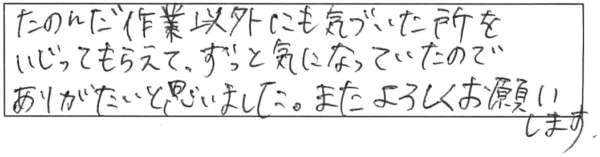 たのんだ作業以外にも気づいた所を
いじってもらえて、ずっと気になっていたので
ありがたいと思いました。またよろしくお願い
します.